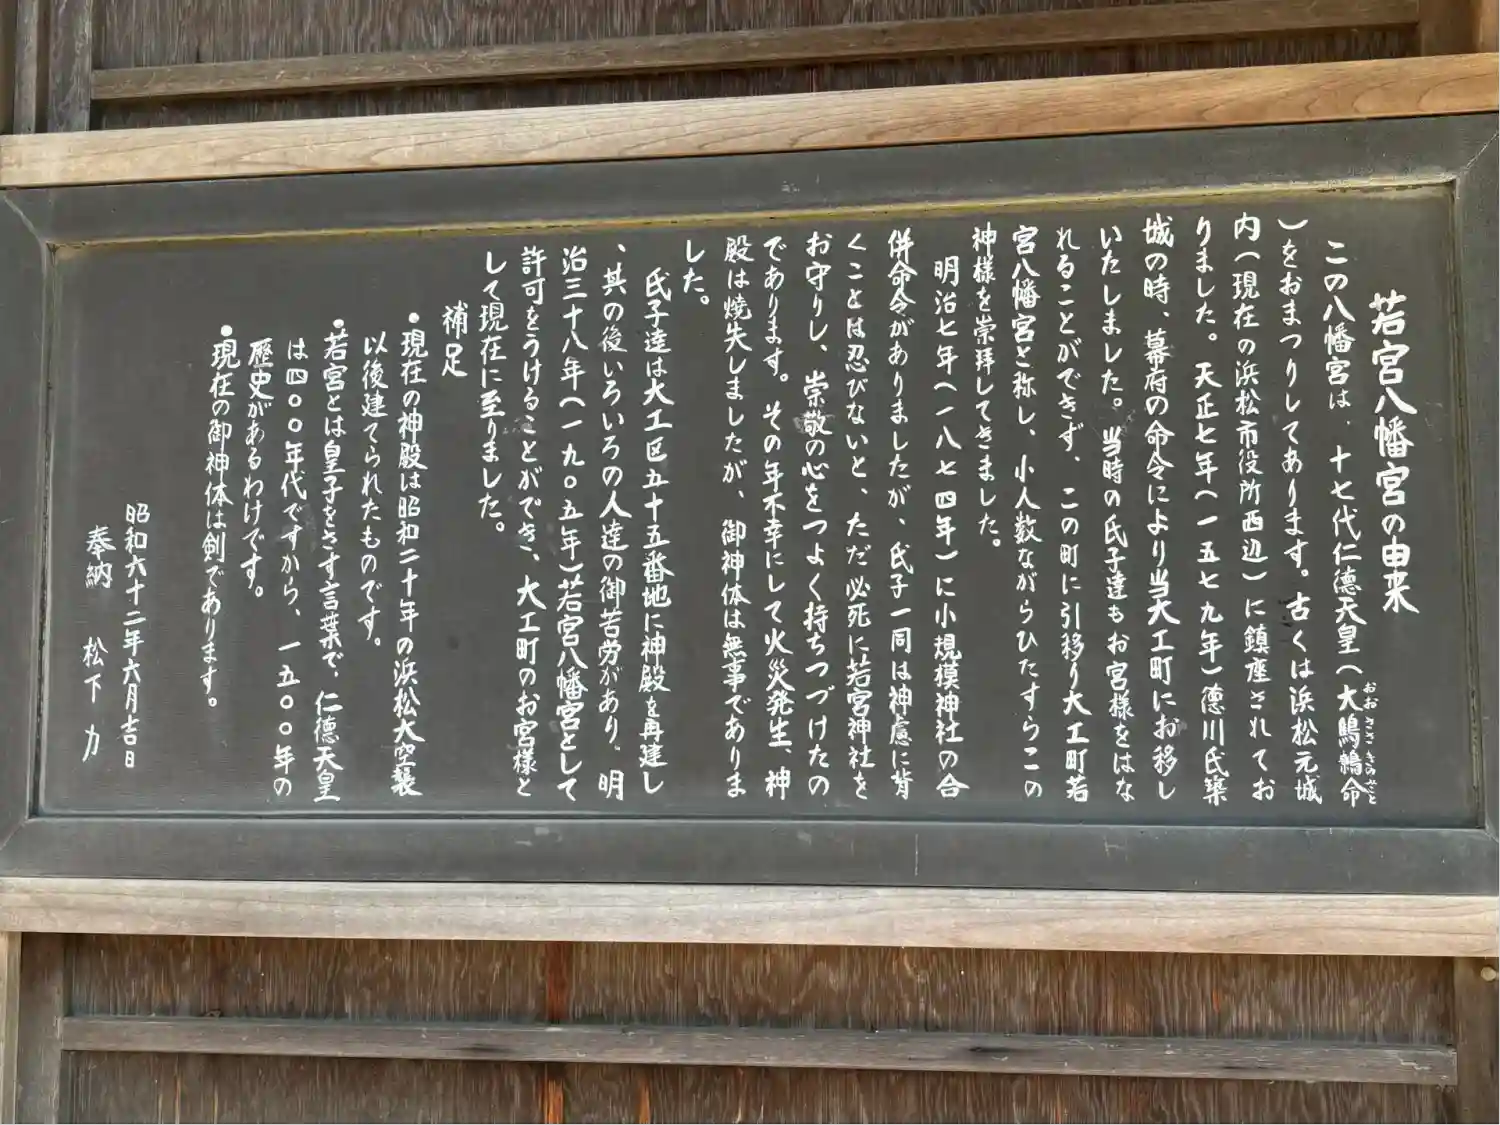 若宮八幡宮の由来
この八幡宮は、十七代仁徳天皇(大鷦鷯命
おおささきのみこと
)をおまつりしてあります。古くは浜松元城
内(現在の浜松市役所西辺)に鎮座されてお
りました。天正七年(一五七九年)德川氏築
城の時、幕府の命令により当大工町にお移し
いたしました。当時の氏子達もお宮様をはな
れることができず、この町に引移り大工町若
宮八幡宮と称し、小人数ながらひたすらこの
神様を崇拝してきました。
明治七年(一八七四年)に小規模神社の合
併命令がありましたが、氏子一同は神慮に背
くことは忍びないと、ただ必死に若宮神社を
お守りし、崇敬の心をつよく持ちつづけたの
であります。その年不幸にして火災発生、神
殿は焼失しましたが、御神体は無事でありま
した。
氏子達は大工区五十五番地に神殿を再建し
、其の後いろいろの人達の御苦労があり、明
治三十八年(一九〇五年)若宮八幡宮として
許可をうけることができ、大工町のお宮様と
して現在に至りました。
補足
●現在の神殿は昭和二十年の浜松大空襲
以後建てられたものです。
●若宮とは皇子をさす言葉で、仁德天皇
は四〇〇年代ですから、一五〇〇年の
歴史があるわけです。
●現在の御神体は剣であります。
昭和六十二年六月吉日
奉納 松下力